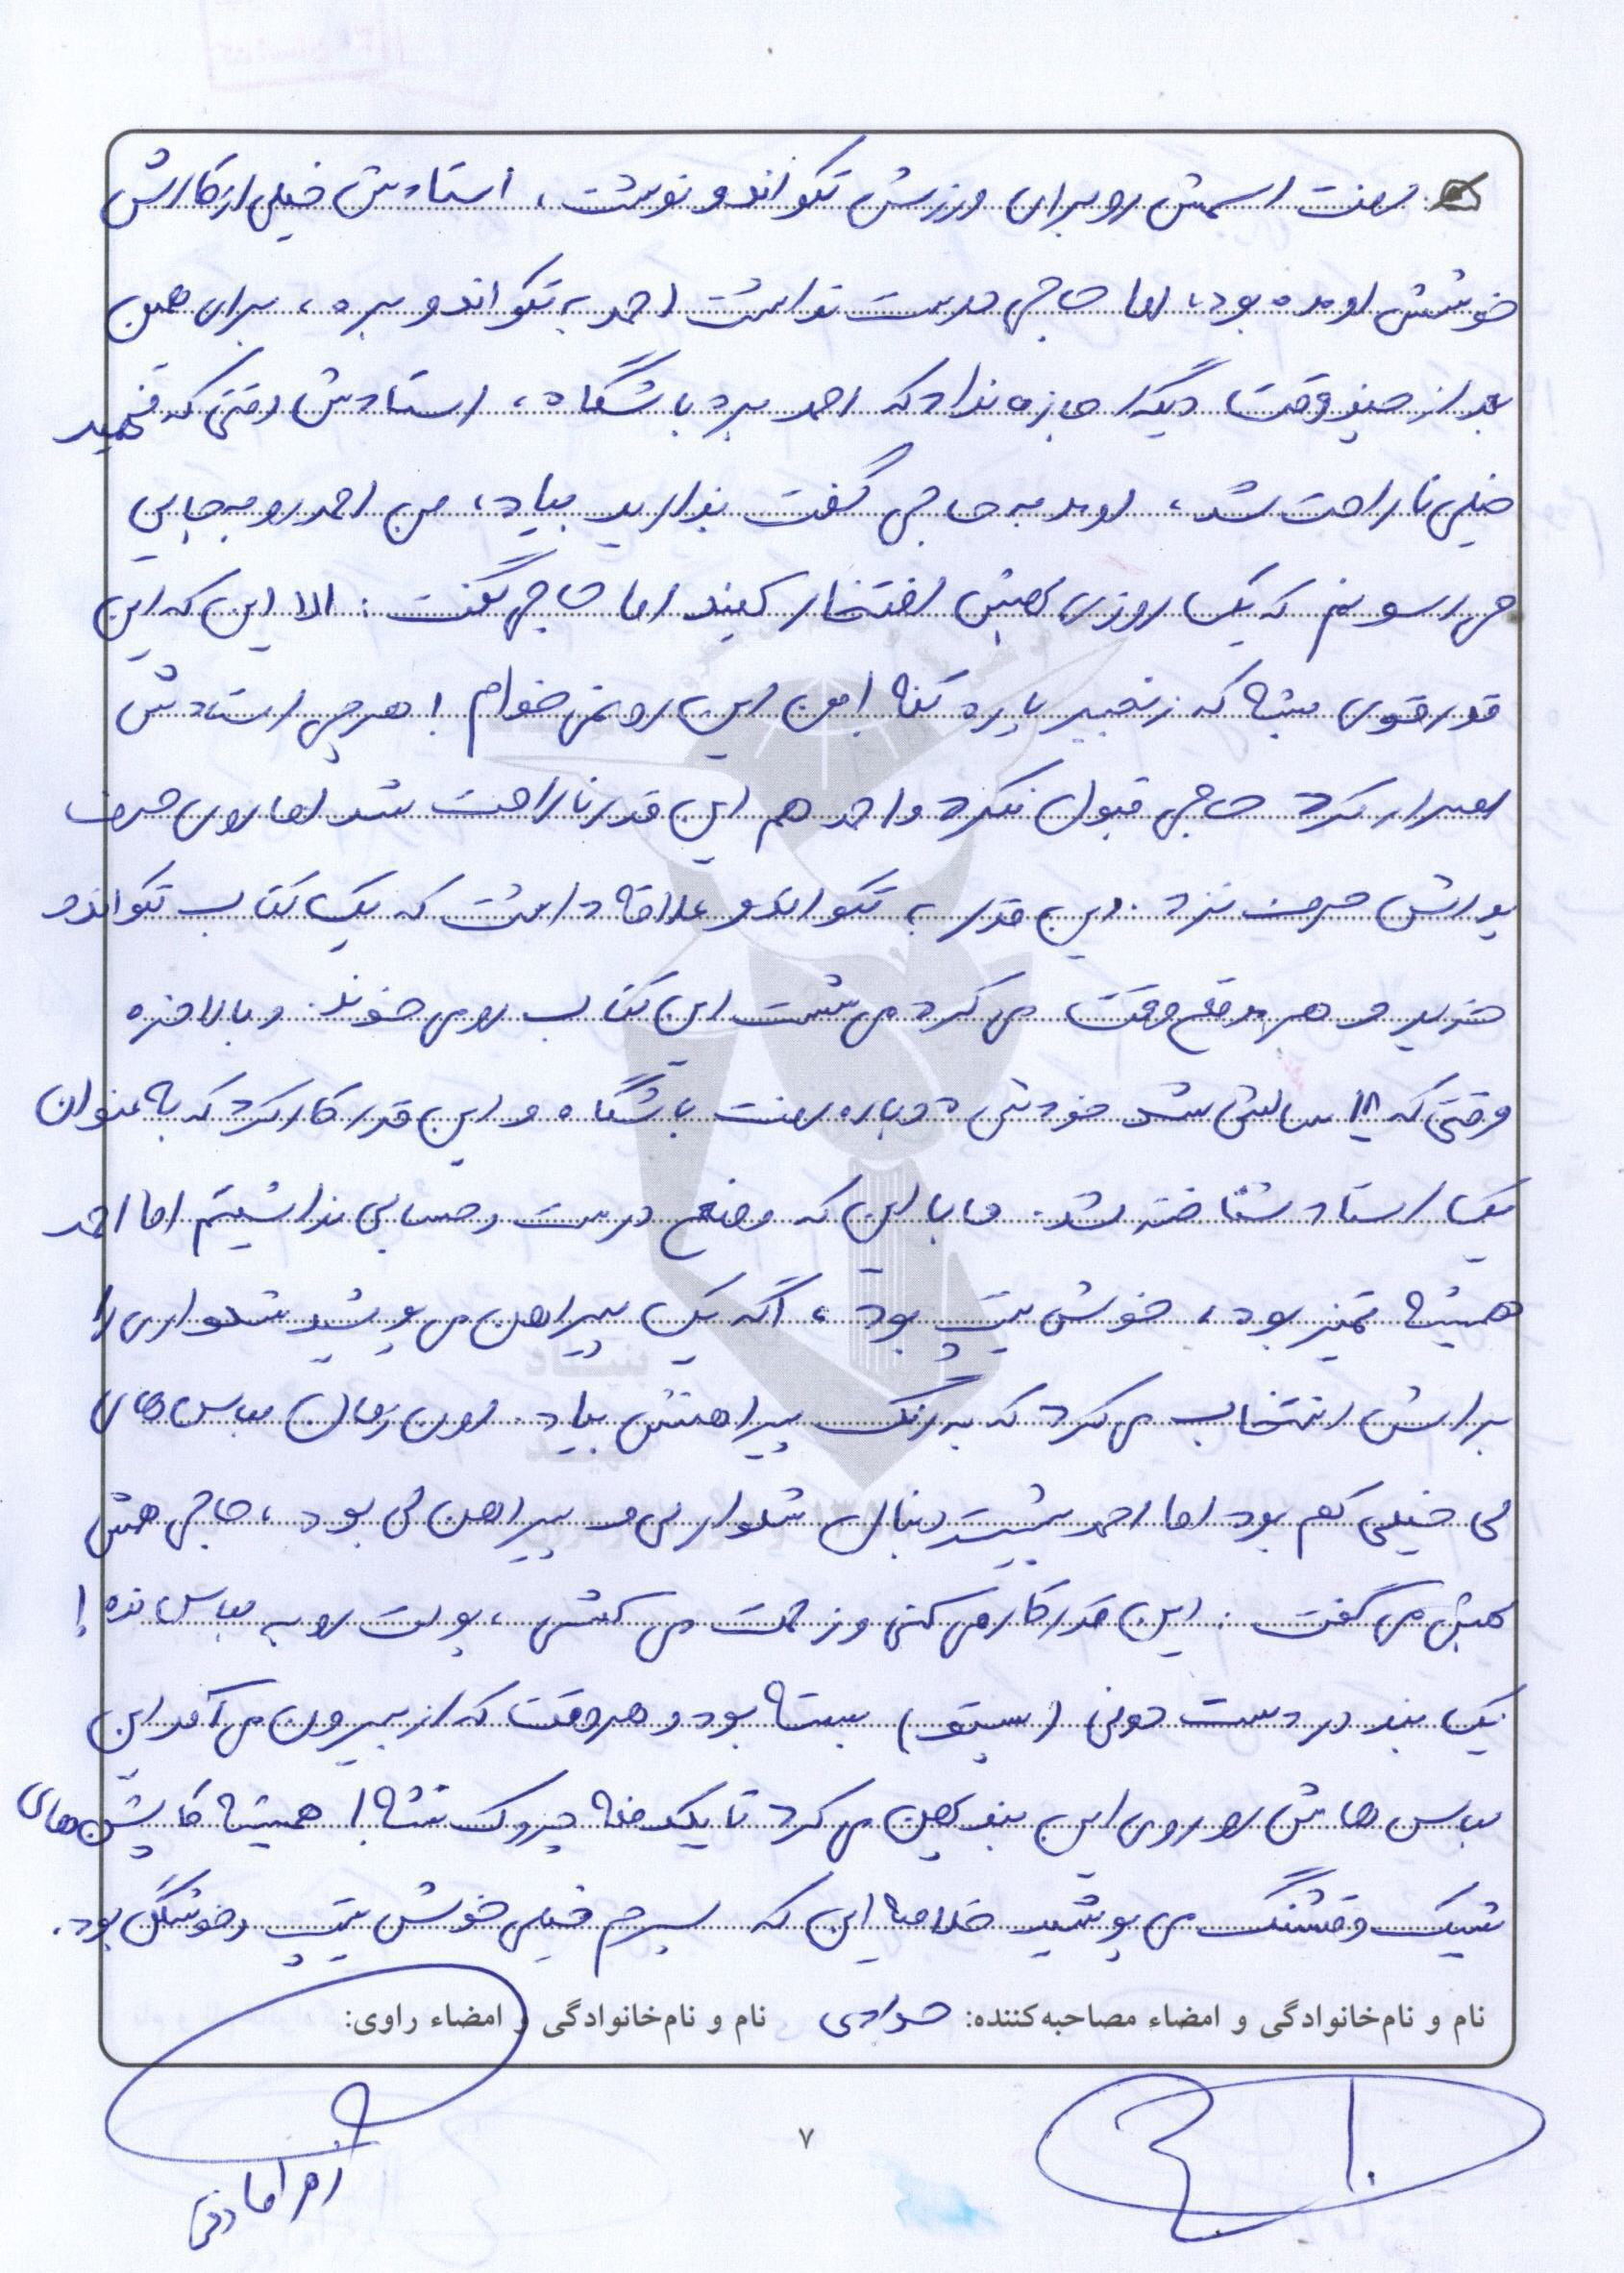 رفت اسمش رو برای ورزش تکواندو نوشت، استادش خیلی از کارش
خوشش اومده بود، اما حاجی دوست نداشت احمد به تکواندو بره، برای همین
بعد از چند وقت دیگه اجازه نداد که احمد بره باشگاه، استادش وقتی که فهمید
خیلی ناراحت شد، اومد به حاجی گفت بذارید بیاد، من احمد رو به جایی
می‌رسونم که یک روزی بهش افتخار کنید اما حاجی گفت: الا این که این
قدر قوی میشه که زنجیر پاره کنه! من این رو نمی‌خوام! هرچی استادش
اصرار کرد حاجی قبول نکرد و احمد هم این قدر ناراحت شد اما روی حرف
پدرش حرف نزد. این قدر به تکواندو علاقه داشت که یک کتاب تکواندو
خرید و هر موقع وقت می‌کرد می‌شست این کتاب رو می‌خوند. و بالاخره
وقتی که ۱۸ سالش شد خودش دوباره رفت باشگاه و این قدر کار کرد که به عنوان
یک استاد شناخته شد. ما با این که وضع درست و حسابی نداشتیم اما احمد
همیشه تمیز بود، خوش تیپ بود، اگه یک پیراهن می‌پوشید شلواری را
برایش انتخاب می‌کرد که به رنگ پیراهنش بیاد. اون زمان لباس‌های
لی خیلی کم بود اما احمد بیشتر دنبال شلوار لی و پیراهن لی بود، حاجی همش
بهش می‌گفت: این قدر کار می‌کنی و زحمت می‌کشی، پولت رو به لباس نده!
یک بند در دست دونی (پستو) بسته بود و هر وقت که از بیرون می‌آمد این
لباس هاش رو روی این بند پهن می‌کرد تا یک دفعه چروک نشه! همیشه کاپشن‌های
شیک و قشنگ می‌پوشید خلاصه این که پسرم خیلی خوش تیپ و خوشگل بود.
نام و نام‌خانوادگی و امضاء مصاحبه‌کننده: نام و نام‌خانوادگی و امضاء راوی:
۷